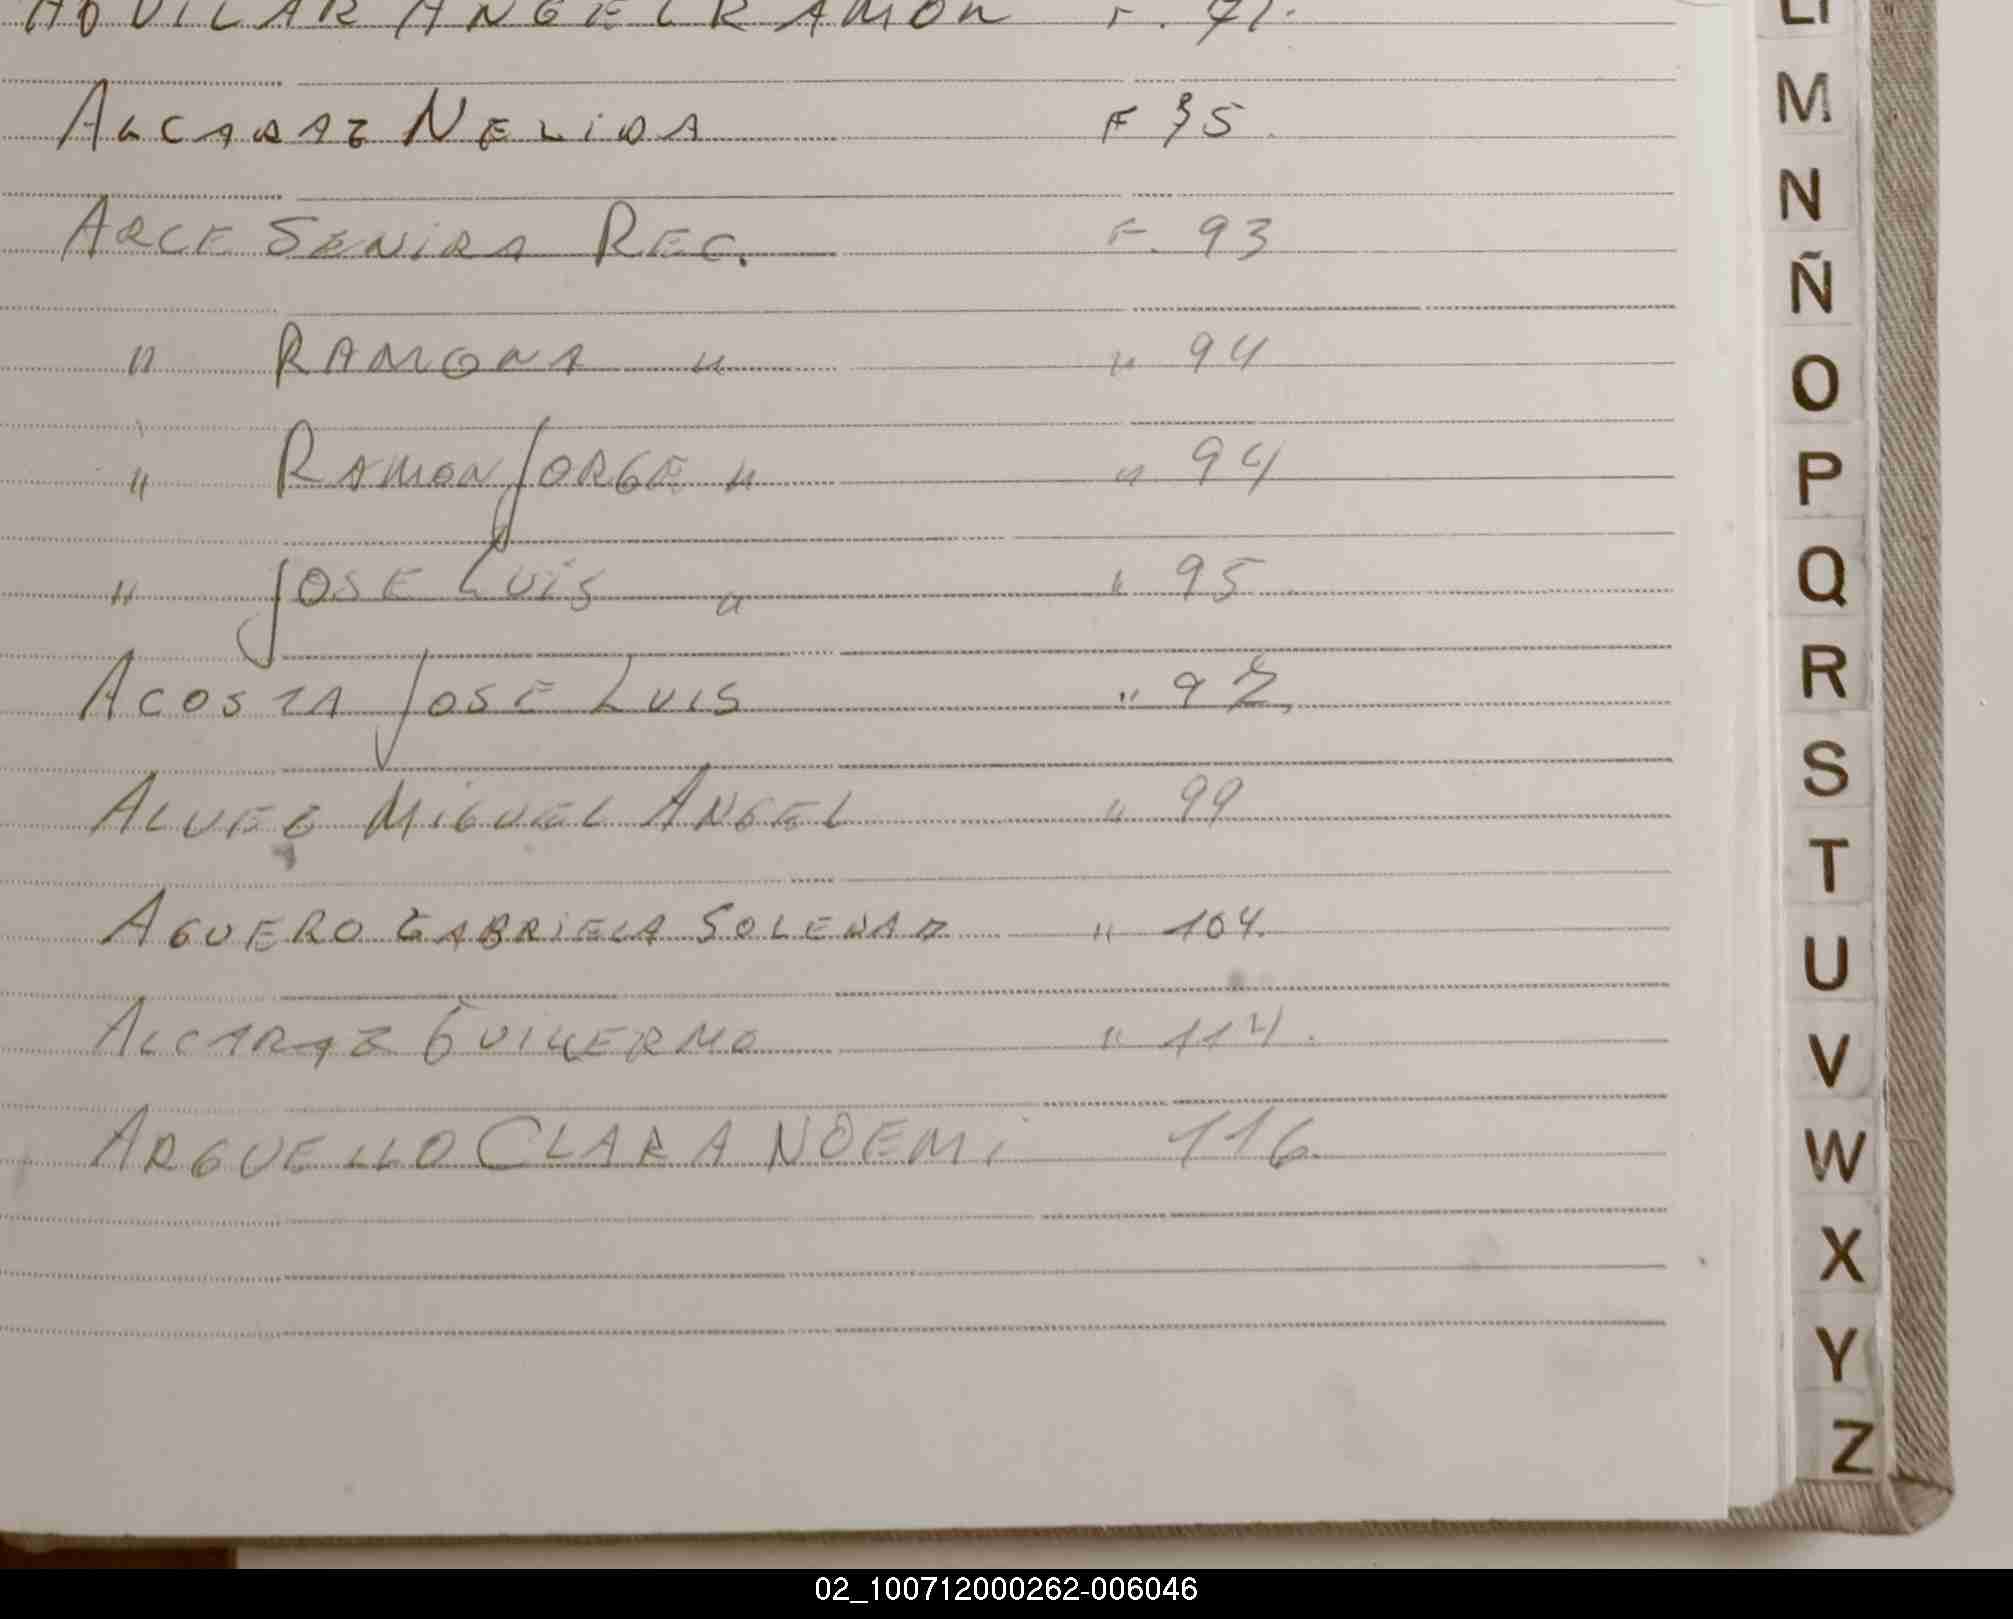 AQUILAR ANGEL RAMON F. 71.
ALCARAZ NELIDA F 85.
ARCE SENIRA REC. F. 93
" RAMONA " " 94
" RAMON JORGE " " 94
" JOSE LUIS " " 95
ACOSTA JOSE LUIS " 97.
ALVEZ MIGUEL ANGEL " 99
AGUERO GABRIELA SOLEDAD " 104.
ALCARAZ GUILLERMO " 114.
ARGUELLO CLARA NOEMI 116.
Ll
M
N
Ñ
O
P
Q
R
S
T
U
V
W
X
Y
Z
02_100712000262-006046